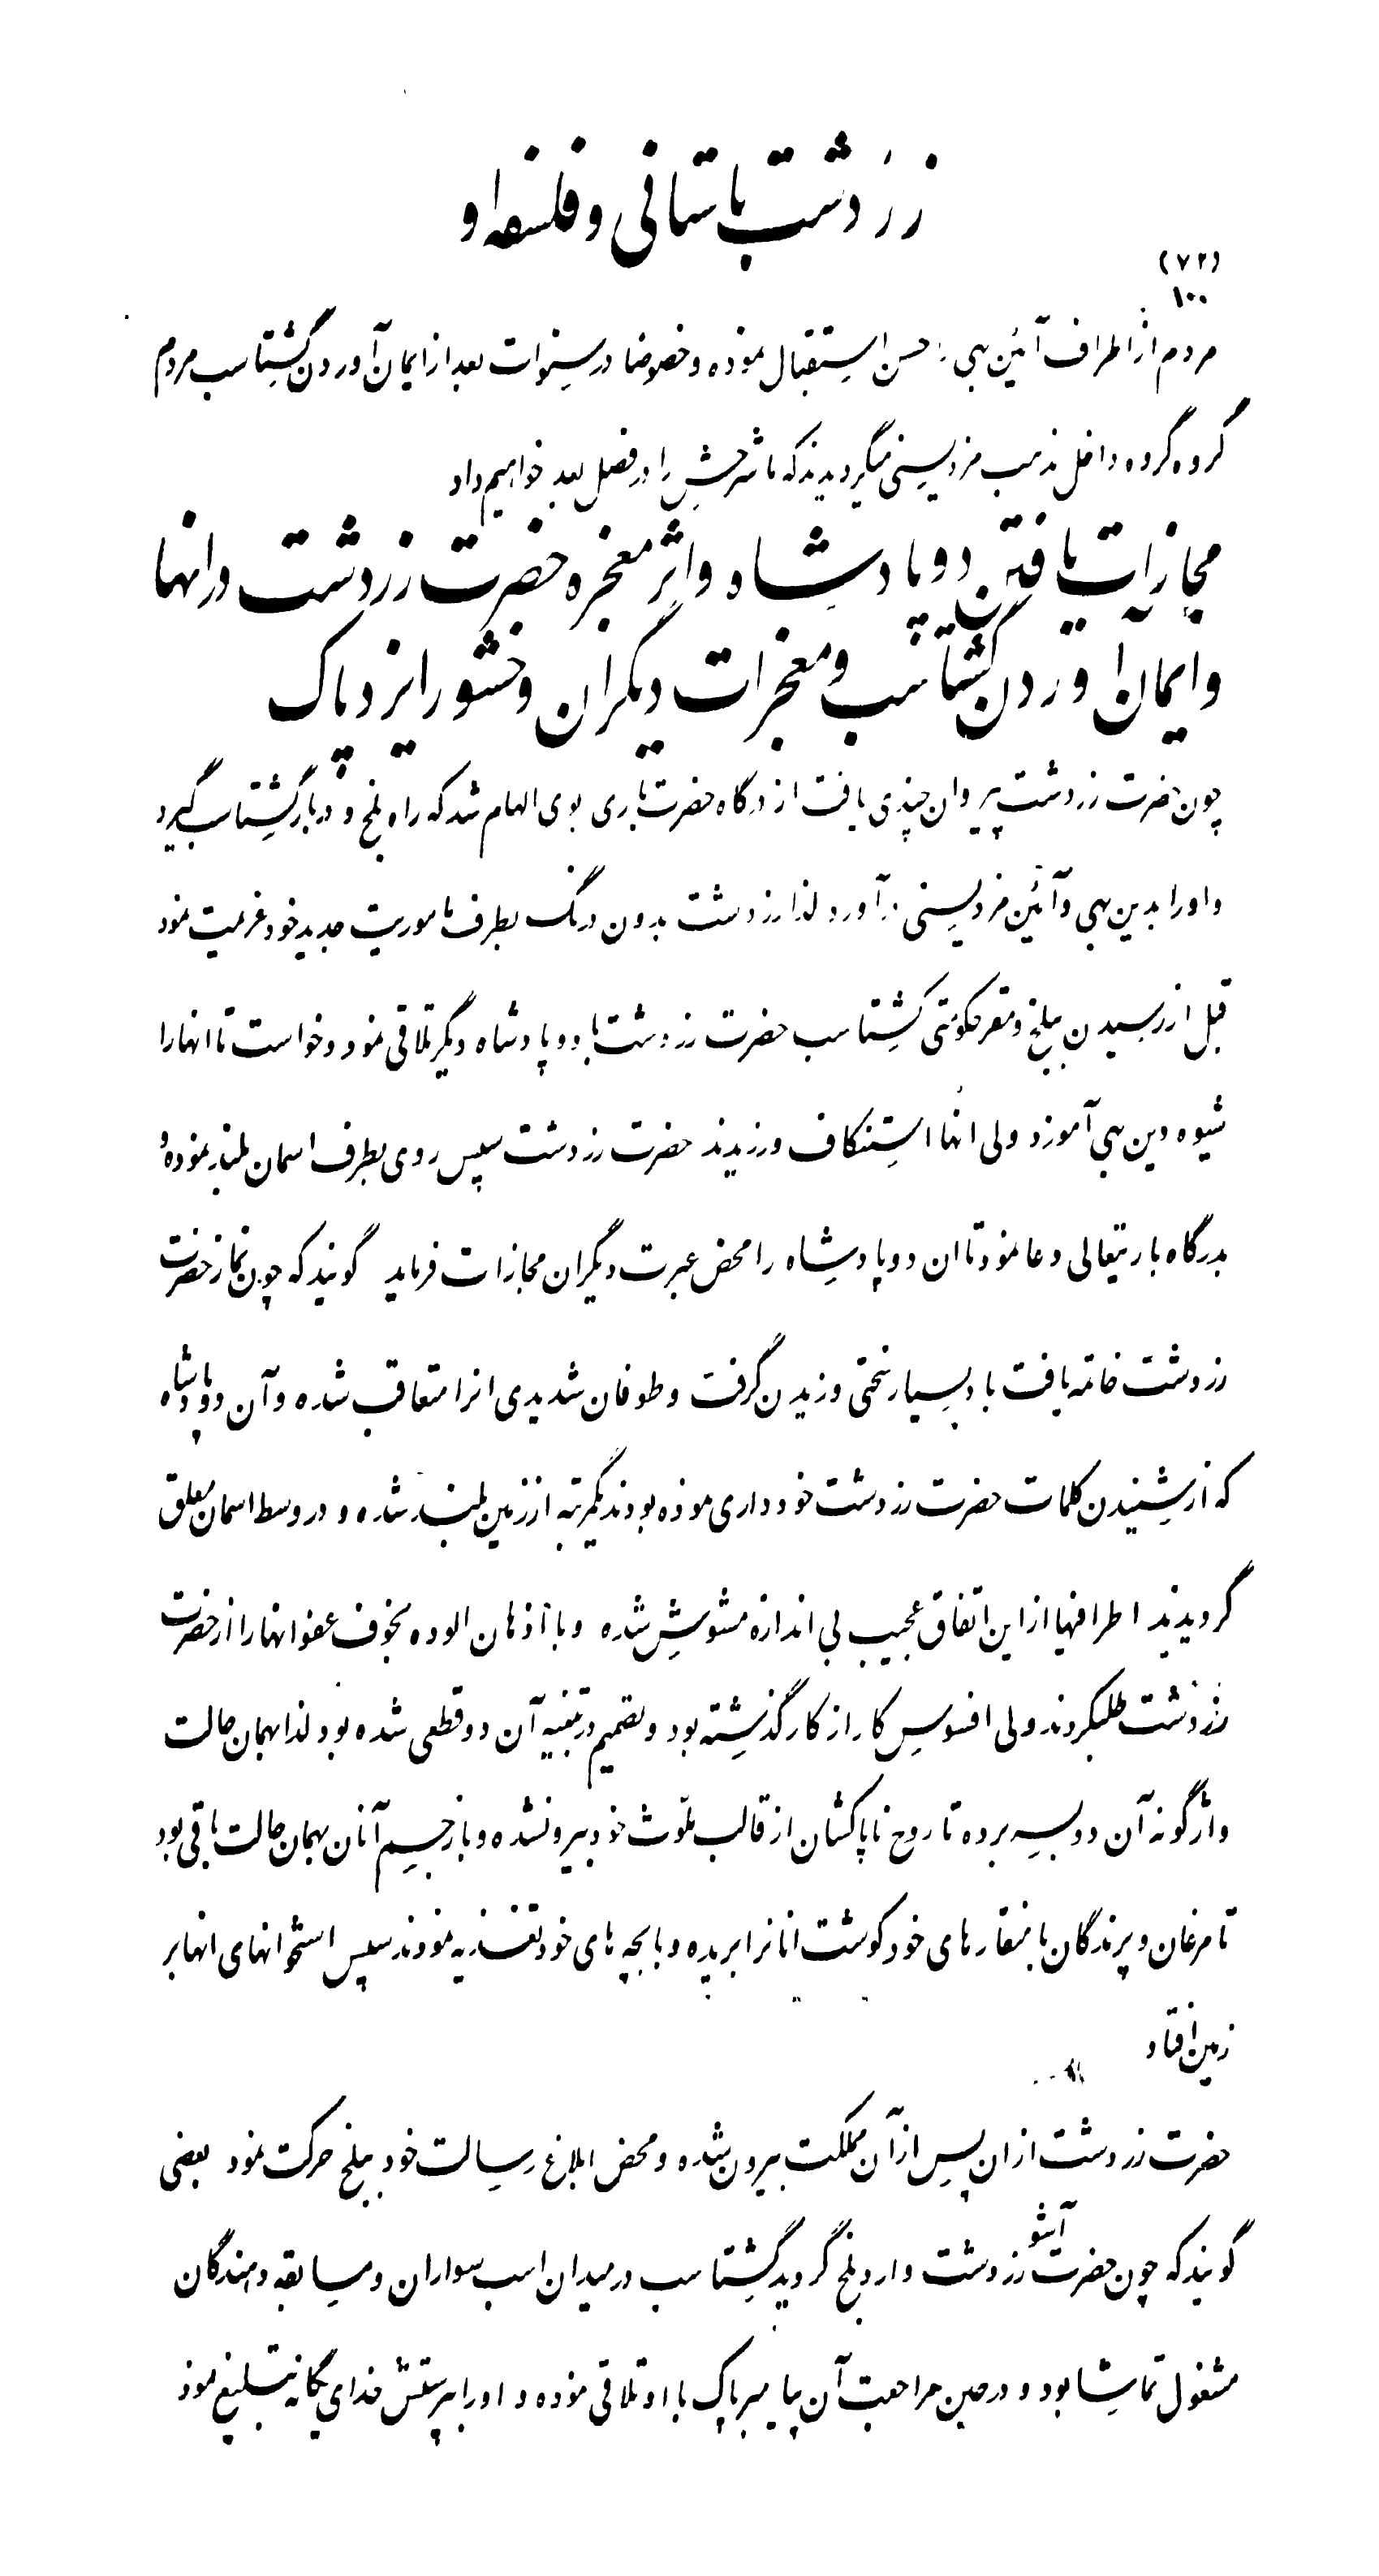 زردشت باستانی و فلسفه او
(۷۲)
۱۰۰
مردم از اطراف آئین بهی را حسن استقبال نموده و خصوصا در سنوات بعد از ایمان آوردن گشتاسب مردم
گروه گروه داخل مذهب مزدیسنی میگردیدند که ما شرحش را در فصل بعد خواهیم داد
مجازات یافتن دو پادشاه و اثر معجزه حضرت زردشت در انها
و ایمان آوردن گشتاسب و معجزات دیگران وخشور ایزد پاک
چون حضرت زردشت پیروان چندی یافت از درگاه حضرت باری بوی الهام شد که راه بلخ و دربار گشتاسب گیرد
و اورا بدین بهی و آئین مزدیسنی در آورد لذا زردشت بدون درنگ بطرف ماموریت جدید خود عزیمت نمود
قبل از رسیدن ببلخ و مقر حکومتی گشتاسب حضرت زردشت با دو پادشاه دیگر تلاقی نمود و خواست تا انهارا
شیوه دین بهی آموزد ولی انها استنکاف ورزیدند حضرت زردشت سپس روی بطرف اسمان بلند نموده و
بدرگاه باریتعالی دعا نمود تا ان دو پادشاه را محض عبرت دیگران مجازات فرماید گویند که چون نماز حضرت
زردشت خاتمه یافت باد بسیار سختی وزیدن گرفت و طوفان شدیدی انرا متعاقب شده و آن دو پادشاه
که از شنیدن کلمات حضرت زردشت خودداری نموده بودند یکمرتبه از زمین بلند شده و در وسط اسمان معلق
گردیدند اطرافیها از این اتفاق عجیب بی اندازه مشوش شده و با اذهان الوده بخوف عفو انهارا از حضرت
زردشت طلبکردند ولی افسوس کار از کار گذشته بود و تصمیم در تنبیه آن دو قطعی شده بود لذا بهمان حالت
واژگونه آن دو بسر برده تا روح ناپاکشان از قالب ملوث خود بیرونشده و باز جسم آنان بهمان حالت باقی بود
تا مرغان و پرندگان با منقارهای خود گوشت انانرا بریده و با بچه های خود تغذیه نمودند سپس استخوانهای انها بر
زمین افتاد
حضرت زردشت از ان پس از آن مملکت بیرون شده و محض ابلاغ رسالت خود ببلخ حرکت نمود بعضی
گویند که چون حضرت آشو زردشت وارد بلخ گردید گشتاسب در میدان اسب سواران و مسابقه دهندگان
مشغول تماشا بود و در حین مراجعت آن پیامبر پاک با او تلاقی نموده و اورا بپرستش خدای یگانه تبلیغ نمود